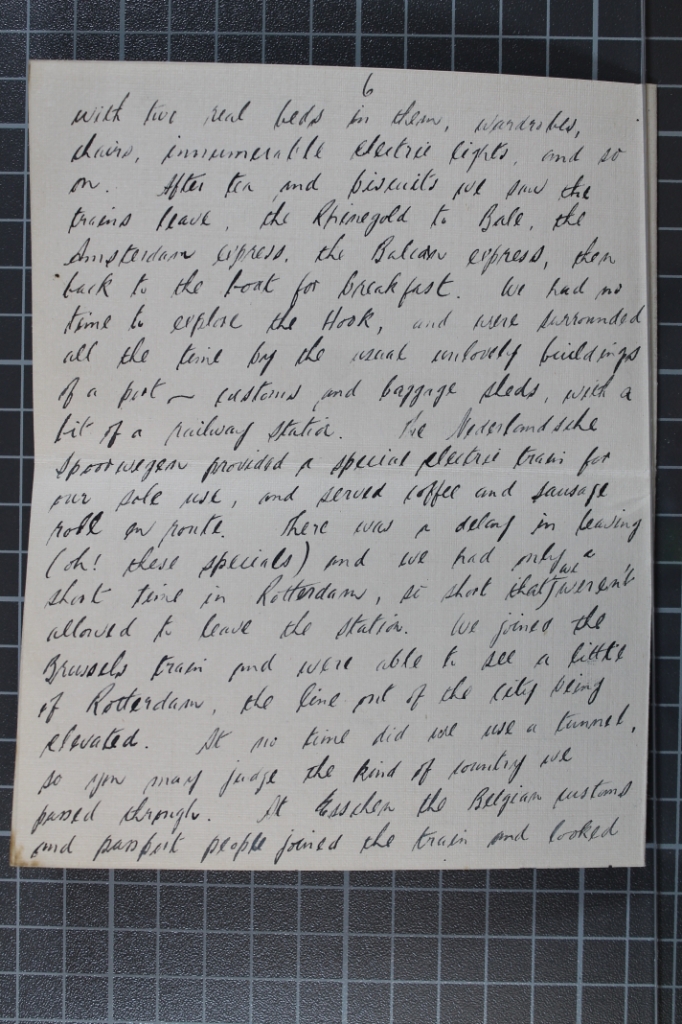 6
with two real beds in them, wardrobes,
chairs, innumerable electric lights, and so
on. After tea and biscuits we saw the
trains leave, the Rhinegold to Bale, the
Amsterdam express, the Balcan express, then
back to the boat for breakfast. We had no
time to explore the Hook, and were surrounded
all the time by the usual unlovely buildings
of a port – customs and baggage sheds, with a
bit of a railway station. The Nederlandsche
Spoorwegen provided a special electric train for
our sole use, and served coffee and sausage
roll en route. There was a delay in leaving
(oh! these specials) and we had only a
short time in Rotterdam, so short that we weren't
allowed to leave the station. We joined the
Brussels train and were able to see a little
of Rotterdam, the line out of the city being
elevated. At no time did we use a tunnel,
so you may judge the kind of country we
passed through. At Esschen the Belgian customs
and passport people joined the train and looked